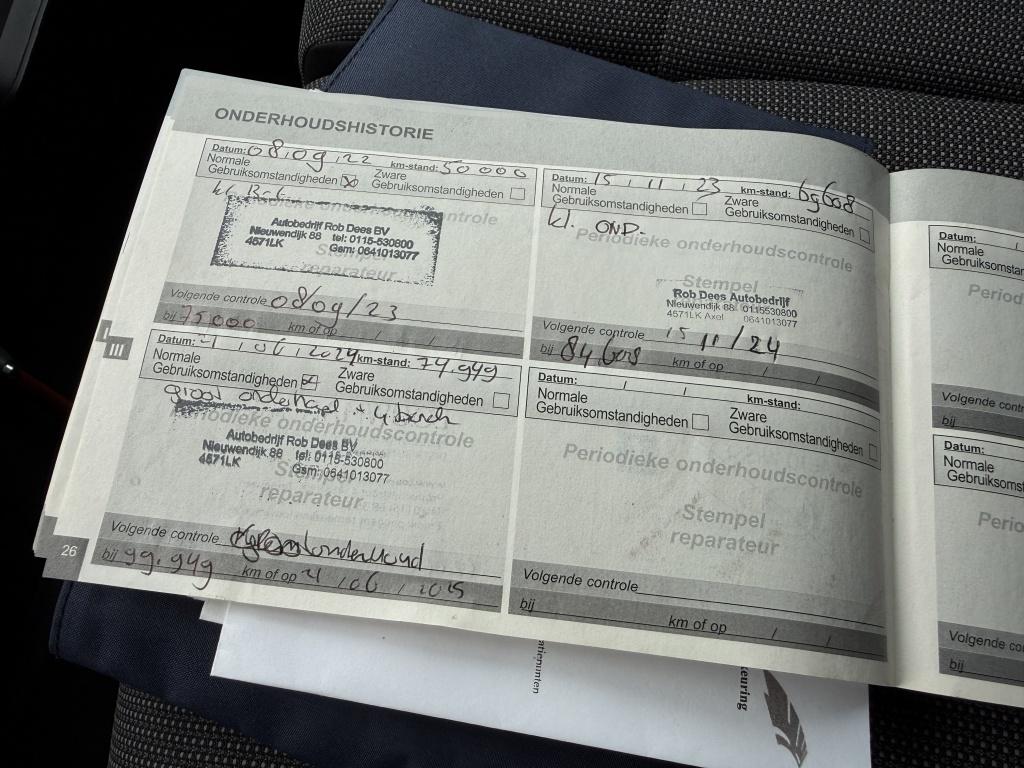 ONDERHOUDSHISTORIE
Datum: 08.09.22 km-stand: 50000
Normale Gebruiksomstandigheden ☒ Zware Gebruiksomstandigheden ☐
kl.
Periodieke onderhoudscontrole
Autobedrijf Rob Dees BV
Nieuwendijk 88 tel: 0115-530800
4571LK Gsm: 0641013077
Stempel
reparateur
Volgende controle 08/09/23
bij 75000 km of op / /
Datum: 15 / 11 / 23 km-stand: 69608
Normale Gebruiksomstandigheden ☐ Zware Gebruiksomstandigheden ☐
kl. OND.
Periodieke onderhoudscontrole
Stempel
Rob Dees Autobedrijf
Nieuwendijk 88 0115530800
4571LK Axel 0641013077
Volgende controle 15 11/24
bij 84608 km of op / /
III
Datum: 4 / 06 / 2024 km-stand: 74.949
Normale Gebruiksomstandigheden ☒ Zware Gebruiksomstandigheden ☐
groot
Periodieke onderhoudscontrole
Autobedrijf Rob Dees BV
Nieuwendijk 88 tel: 0115-530800
4571LK Gsm: 0641013077
Stempel
reparateur
Volgende controle onderhoud
bij 99.949 km of op 4 / 06 / 2025
Datum: / / km-stand:
Normale Gebruiksomstandigheden ☐ Zware Gebruiksomstandigheden ☐
Periodieke onderhoudscontrole
Stempel
reparateur
Volgende controle
bij km of op / /
26
Datum: /
Normale
Gebruiksomstan
Period
Volgende cont
bij
Datum: /
Normale
Gebruiksomst
Perio
Volgende co
bij
euring